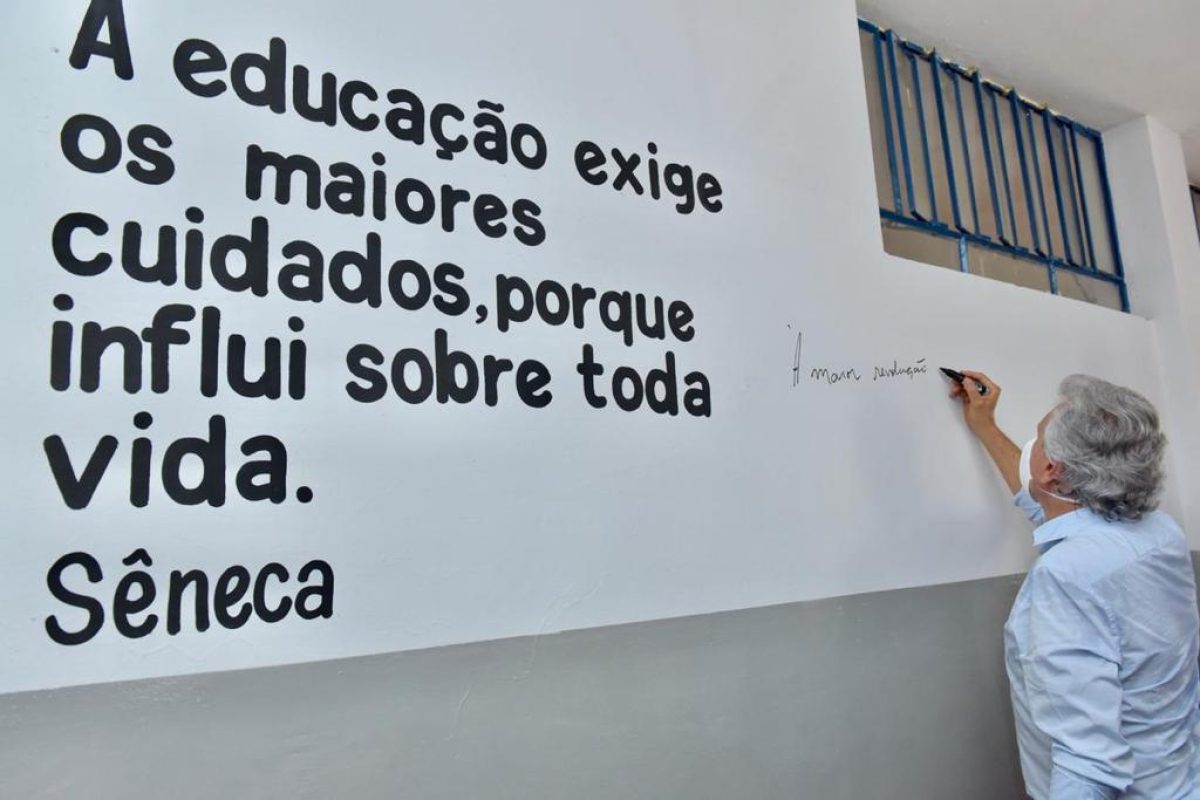 A educação exige
os maiores
cuidados,porque
influi sobre toda
vida.
Sêneca
"A maior revolução